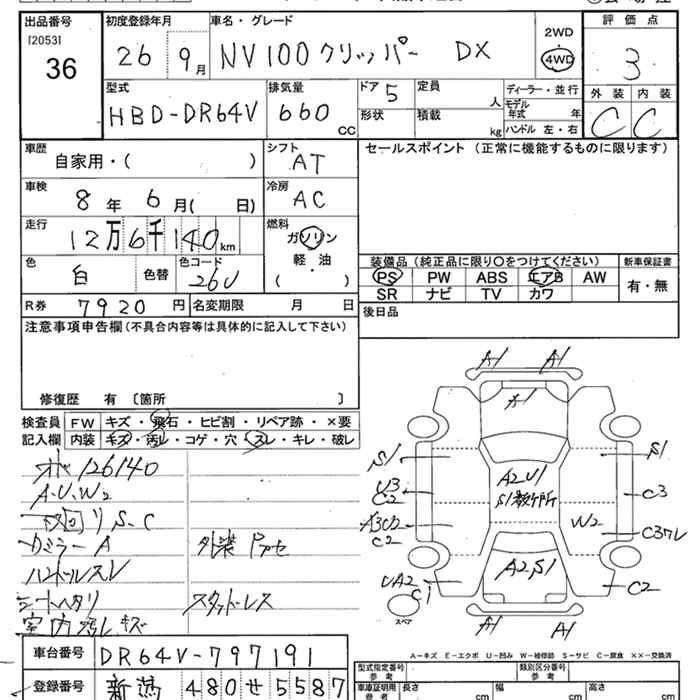 出品番号 初度登録年月 車名・グレード 2WD 4WD 評価点
[2053] 36 26 9月 NV100クリッパー DX 3
型式 HBD-DR64V 排気量 660 CC ドア 5 形状 定員 人 積載 kg ディーラー・並行 モデル年式 年 ハンドル 左・右 外装 C 内装 C
車歴 自家用・( ) シフト AT セールスポイント (正常に機能するものに限ります)
車検 8年 6月( 日) 冷房 AC
走行 12万6千140km 燃料 ガソリン 軽油 ( )
色 白 色替 色コード 26U 装備品 (純正品に限り○をつけてください) 新車保証書
PS PW ABS エアB AW 有・無
SR ナビ TV カワ
R券 7920円 名変期限 月 日 後日品
注意事項申告欄 (不具合内容等は具体的に記入して下さい)
修復歴 有 〔箇所 〕
検査員 FW キズ・飛石・ヒビ割・リペア跡・×要
記入欄 内装 キズ・汚レ・コゲ・穴・スレ・キレ・破レ
126140
A・U・W2
S・C
カドミラーA 外装
ハンドルスレ
シートヘタリ スタッドレス
室内汚レキズ
A1 A1
A1
S1 S1
U3 C2 A2U1 C3
S1数ケ所
A3C2 C2 W2 C3フレ
A2,S1
UA2 C1 C2
スペア
A1 A1
A-キズ E-エクボ U-凹み W-補修跡 S-サビ C-腐食 ××-交換済
車台番号 DR64V-797191 型式指定番号 参考 類別区分番号 参考
登録番号 新潟 480せ5587 車庫証明用 参考 長さ cm 幅 cm 高さ cm